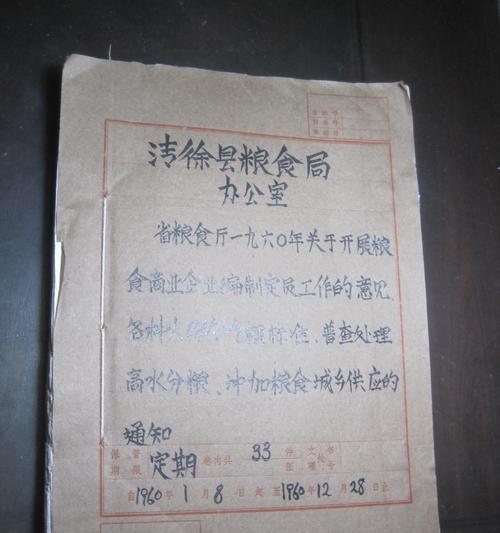 清徐县粮食局
办公室
省粮食厅一九六〇年关于开展粮
食商业企业编制定员工作的意见、
各种 粮标准、普查处理
高水分粮、冲加粮食城乡供应的
通知
保管期限 定期 卷内共 33 件张 文书处理号
自1960年1月8日起至1960年12月28日止